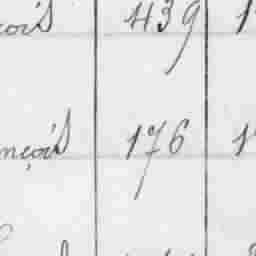 çois 439 1
nçois 176 1